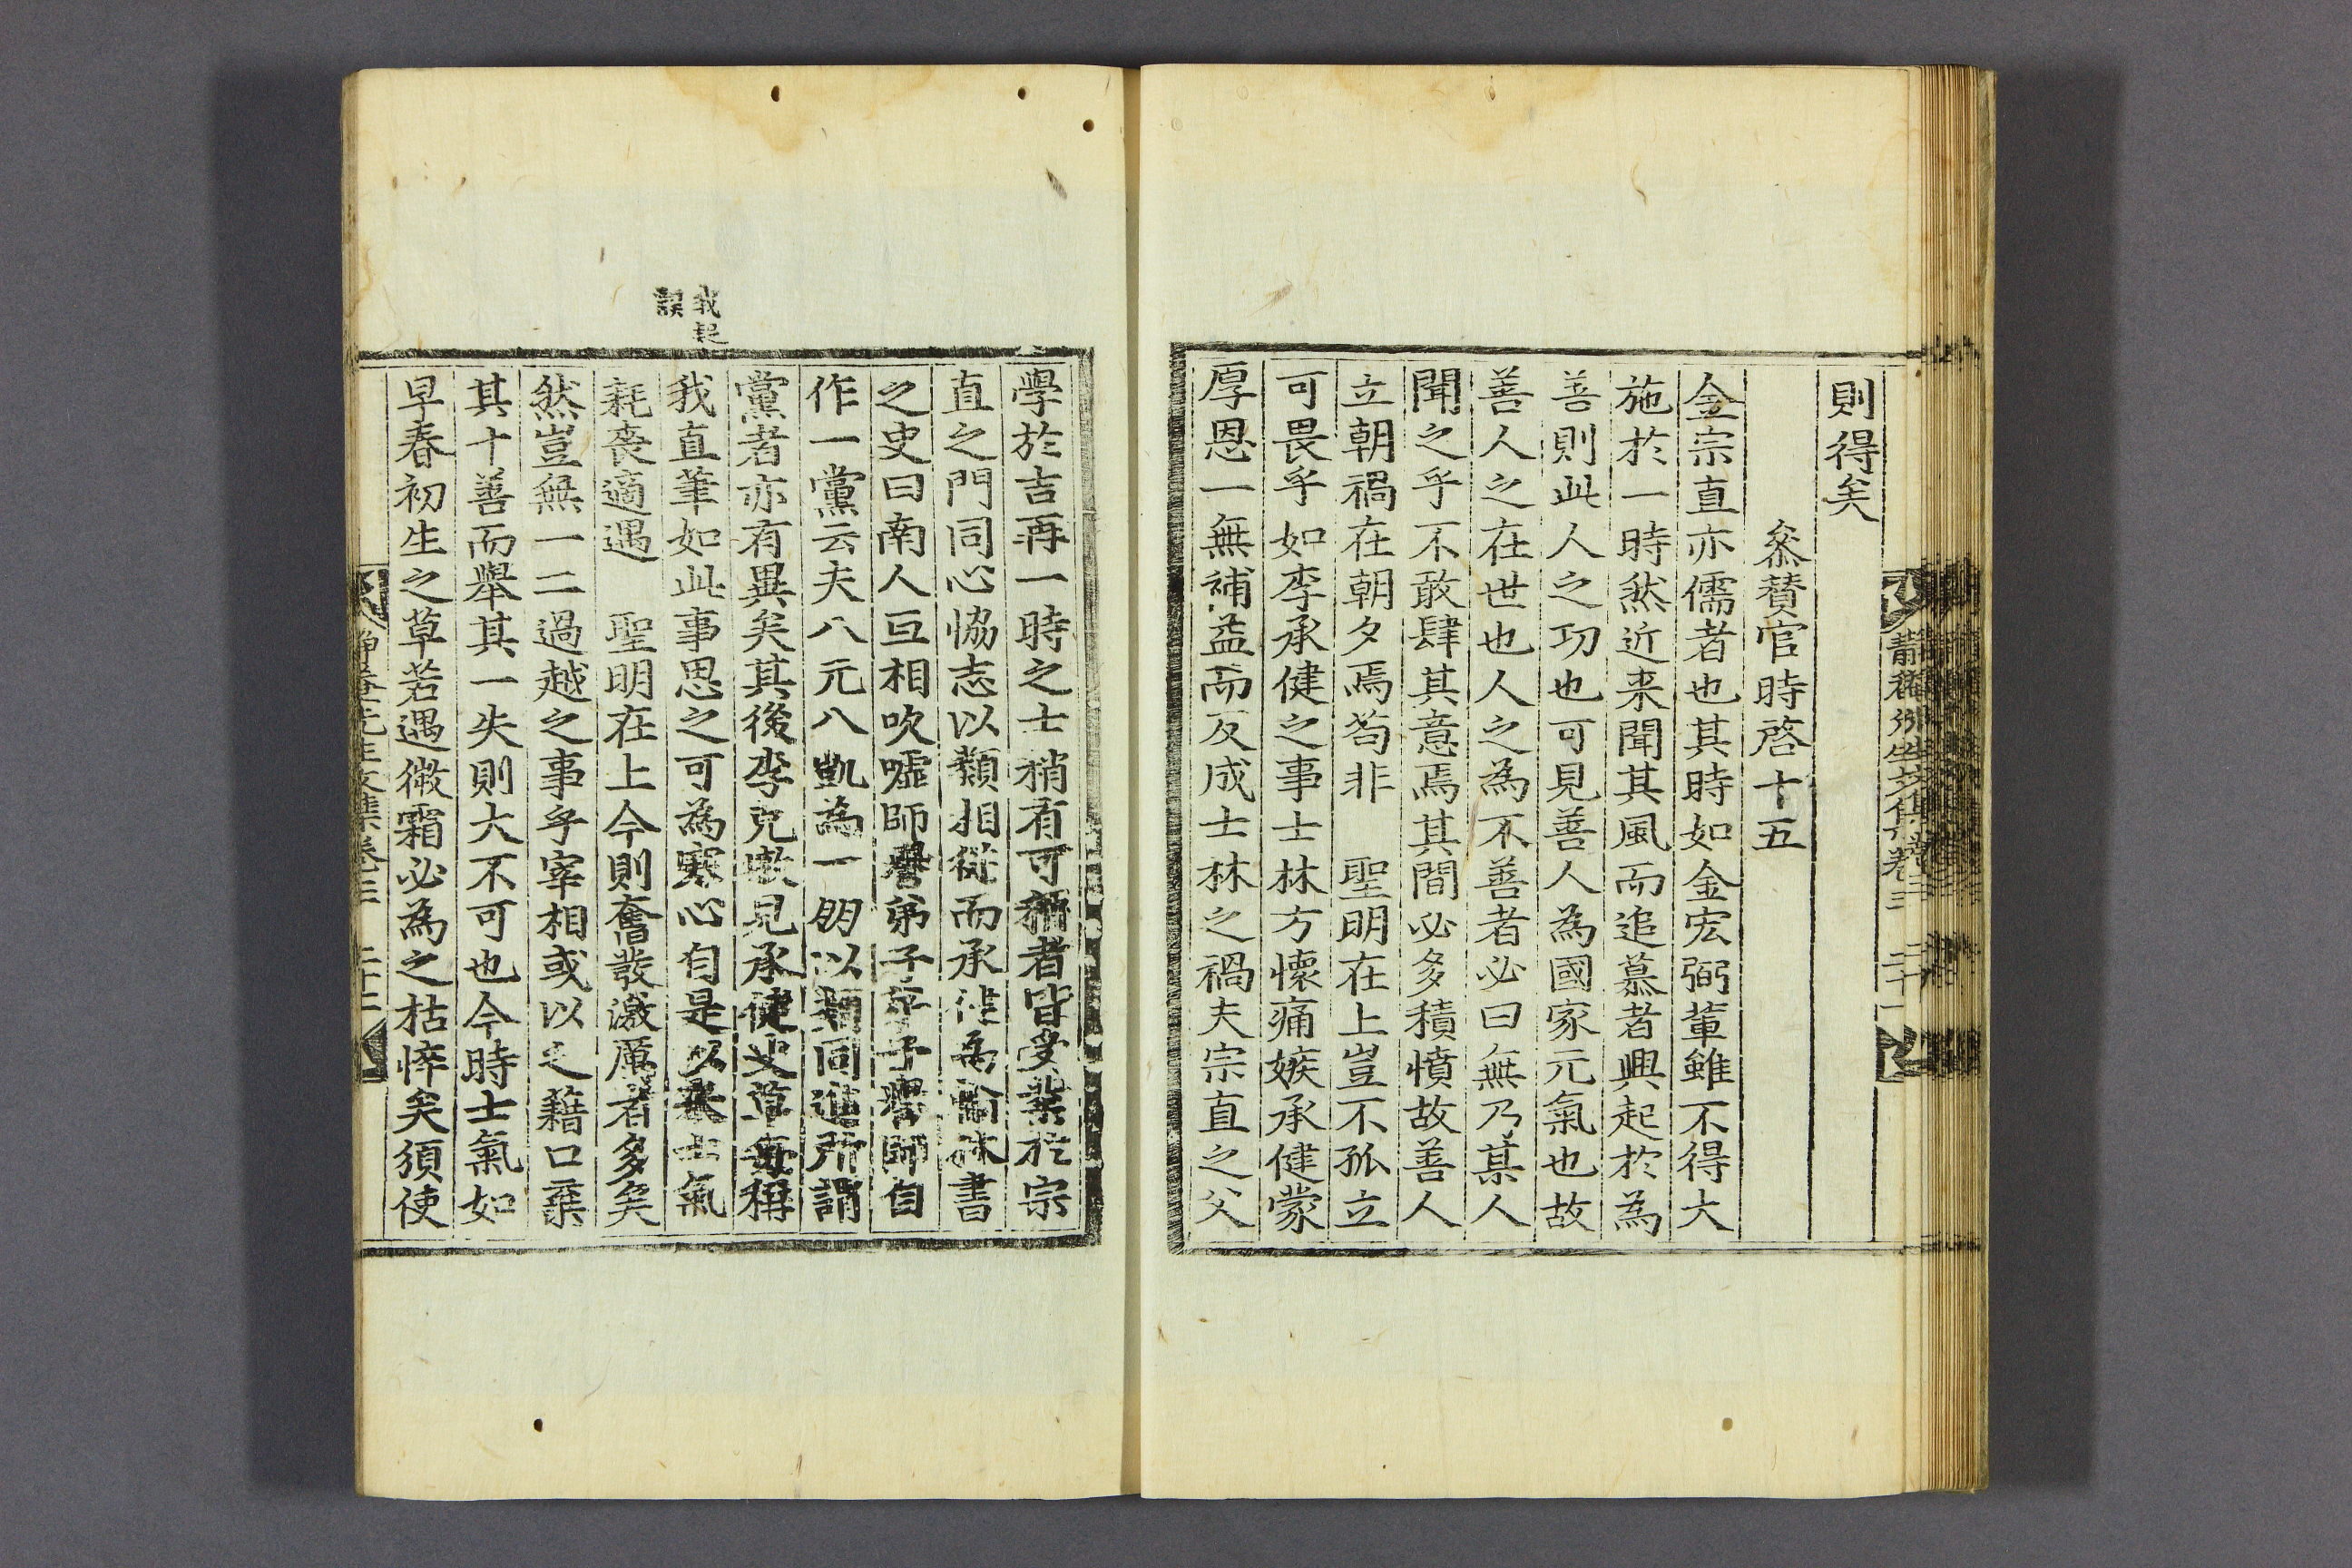 則得矣
叅賛官時啓十五
金宗直亦儒者也其時如金宏弼輩雖不得大
施於一時然近来聞其風而追慕者興起於為
善則此人之功也可見善人為國家元氣也故
善人之在世也人之為不善者必曰無乃某人
聞之乎不敢肆其意焉其間必多積憤故善人
立朝禍在朝夕焉苟非 聖明在上豈不孤立
可畏乎如李承健之事士林方懷痛嫉承健蒙
厚恩一無補益而反成士林之禍夫宗直之父
靜菴先生文集卷三 二十一
學於吉再一時之士稍有可稱者皆受業於宗
直之門同心恊志以類相從而承健為翰林書
之史曰南人互相吹噓師譽弟子弟子譽師自
作一黨云夫八元八凱為一朋以類同進所謂
黨者亦有異矣其後李克墩見承健史草每稱
我直筆如此事思之可為寒心自是以來士氣
耗喪適遇 聖明在上今則奮發激厲者多矣
然豈無一二過越之事乎宰相或以之藉口棄
其十善而舉其一失則大不可也今時士氣如
早春初生之草若遇微霜必為之枯悴矣須使
靜菴先生文集卷三 二十二
我起
誤